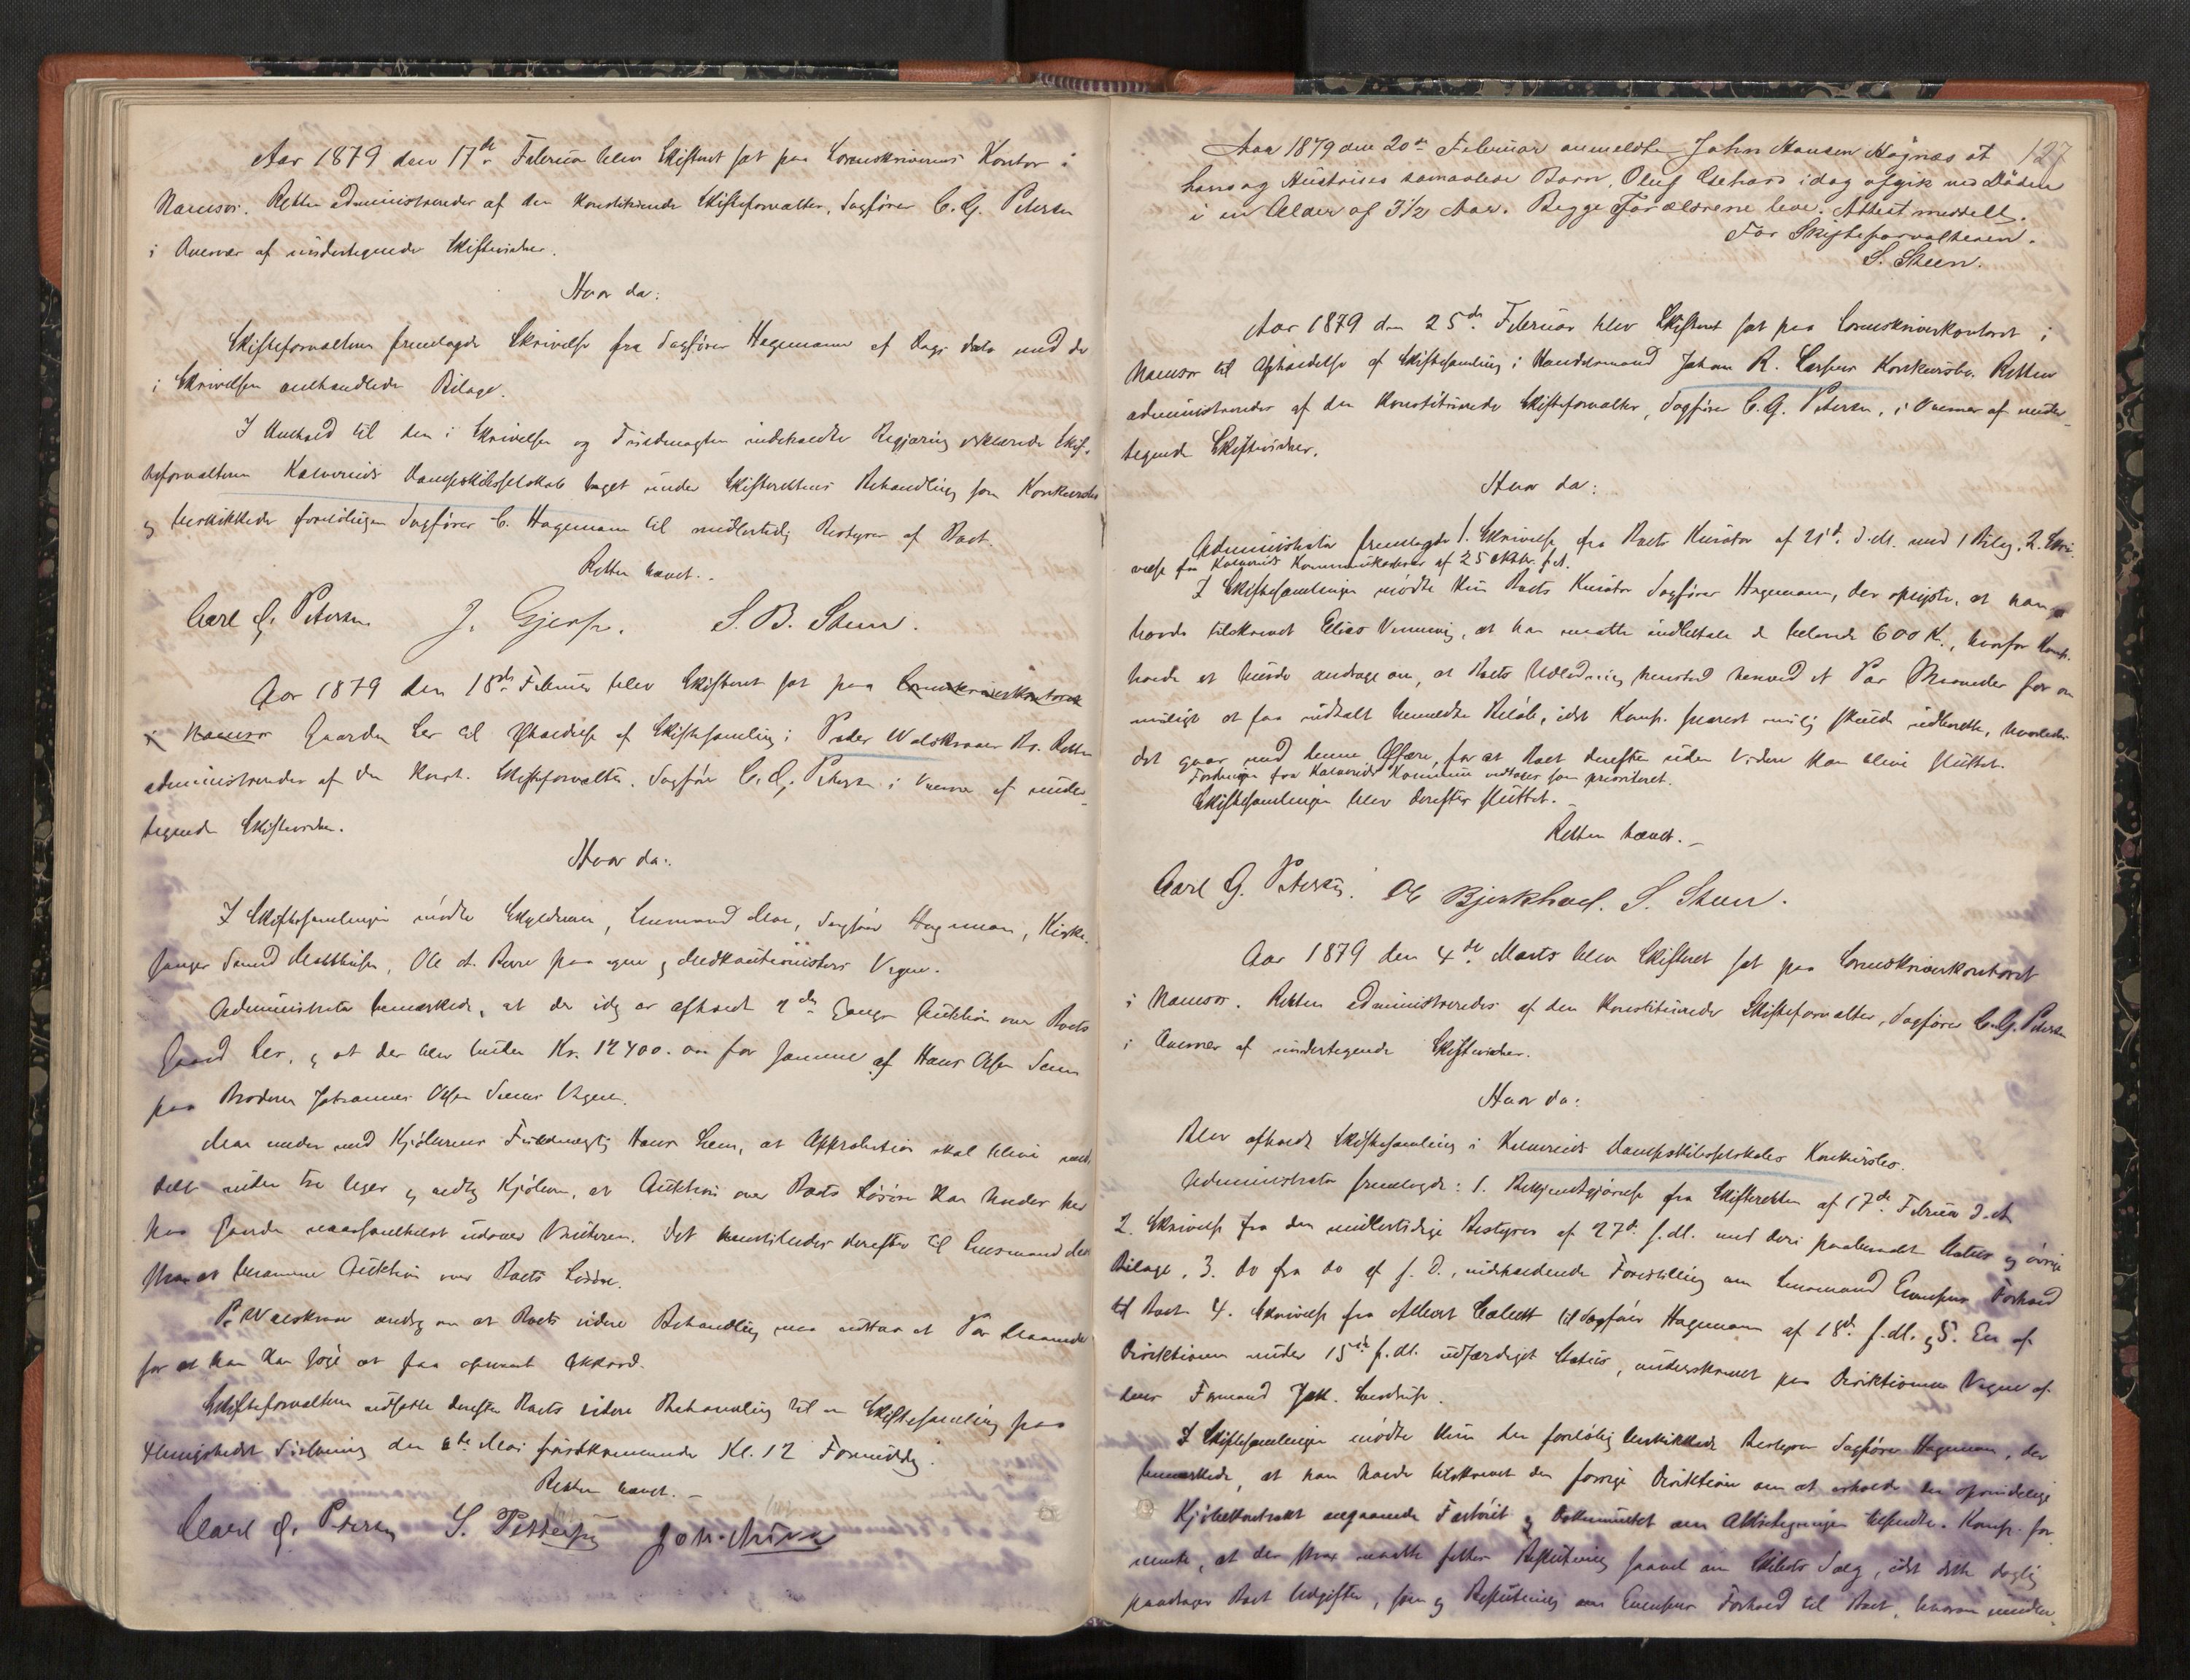 Aar 1879 den 17de Februar blev Skifteret sat paa Sorenskriverens Kontor i
Namsos. Retten administreredes af den konstituerede Skifteforvalter, Sagfører C. G. Petersen
i Overvær af undertegnede Skiftevidner.
Hvor da:
Skifteforvalteren fremlagde Skrivelse fra Sagfører Hagemann af Dags Dato med de
i Skrivelsen omhandlede Bilage.
I Henhold til den i Skrivelsen og Fuldmagten indeholdte Begjæring erklærede Skif-
teforvalteren Kolvereids Dampskibsselskab taget under Skifterettens Behandling som Konkursbo
og beskikkede foreløbigen Sagfører C. Hagemann til midlertidig Bestyrer af Boet.
Retten hævet.
Carl G. Petersen J. Gjersø. S. B. Steen.
Aar 1879 den 18de Februar blev Skifteret sat paa Sorenskriverkontoret
i Namsos Gaarden Ler til Afholdelse af Skiftesamling i Peder Bo. Retten
administreredes af den konst. Skifteforvalter, Sagfører C. G. Petersen i Overvær af under-
tegnede Skiftevidner.
Hvor da:
I Skiftesamlingen mødte Skyldneren, Lensmand Moe, Sagfører Hagemann, Kirke-
sanger Matthisen, Ole paa egne og Medkautionisters Vegne.
Administrator bemærkede, at der idag er afholdt 2den Gangs Auktion over Boets
Gaard Ler, og at der blev buden Kr. 12400.00 for samme af Hans Olsen
paa Broderen Johannes Olsen Vegne.
Man enedes med Kjøberens Fuldmægtig Hans, at Approbation skal blive med-
delt inden tre Uger og vedtog Kjøberen, at Auktion over Boets Løsøre kan holdes her
paa Gaarden udover Vinteren. Det henstilledes derefter til Lensmand Moe
strax at beramme Auktion over Boets Løsøre.
P. androg om at Boets videre Behandling maa udstaa et Par Maaneder
for at han kan søge at faa opnaaet Akkord.
Skifteforvalteren udsatte derefter Boets videre Behandling til en Skiftesamling paa
den 6te Mai førstkommende Kl. 12 Formiddag.
Retten hævet. —
Carl G. Petersen S. Pettersen Joh.
127
Aar 1879 den 20de Februar anmeldte John Hansen Høgnæs at
hans og Hustrues samavlede Barn, Oluf Gerhard idag afgik ved Døden
i en Alder af 3 1/2 Aar. Begge Forældrene leve. Attest meddelt.
For Skifteforvalteren.
S. Steen.
Aar 1879 den 25de Februar blev Skifteret sat paa Sorenskriverkontoret i
Namsos til Afholdelse af Skiftesamling i Handelsmand Johan R. Konkursbo. Retten
administreredes af den konstituerede Skifteforvalter, Sagfører C. G. Petersen, i Overvær af under-
tegnede Skiftevidner.
Hvor da:
Administrator fremlagde 1. Skrivelse fra Boets Kurator af 21de d.M. med 1 Bilag, 2. Skri-
velse fra Kolvereids Kommunekasserer af 25 Oktbr. f.A.
I Skiftesamlingen mødte kun Boets Kurator Sagfører Hagemann, der oplyste, at han
havde tilskrevet Elias, at han maatte indbetale de 600 Kr., hvorfor Komp.
havde at at Boets Udlodning henstod et Par Maaneder for om
muligt at faa indtalt bemeldte Beløb, idet Komp. snarest mulig skulde indberette, hvorledes
det gaar med denne Affære, for at Boet derefter uden Videre kan blive sluttet.
Fordringen fra Kolvereids Kommune vedtoges som prioriteret.
Skiftesamlingen blev derefter sluttet. —
Retten hævet. —
Carl G. Petersen. Ole Bjørkhaal. S. Steen.
Aar 1879 den 4de Marts blev Skifteret sat paa Sorenskriverkontoret
i Namsos. Retten administreredes af den konstituerede Skifteforvalter, Sagfører C. G. Petersen
i Overvær af undertegnede Skiftevidner.
Hvor da:
Blev afholdt Skiftesamling i Kolvereids Dampskibsselskabs Konkursbo.
Administrator fremlagde: 1. Bekjendtgjørelse fra Skifteretten af 17de Februar d.A.
2. Skrivelse fra den midlertidige Bestyrer af 27de f.M. med deri paaberaabt Status og øvrige
Bilage, 3. do fra do af s. D., indeholdende Forestilling om Lensmand Forhold
til Boet 4. Skrivelse fra Albert Collett til Sagfører Hagemann af 18de f.M. og 5. En af
Direktionen under 15de f.M. udfærdiget Status, underskrevet paa Direktionens Vegne af
dens Formand Jak.
I Skiftesamlingen mødte kun den foreløbig beskikkede Bestyrer Sagfører Hagemann, der
bemærkede, at han havde tilskrevet den forrige Direktion om at erholde den oprindelige
Kjøbekontrakt angaaende Fartøiet og Dokumentet om Aktietegningen tilsendte. Komp. for-
mente, at der strax maatte fattes Beslutning saavel om Skibets Salg, idet dette daglig
paadrager Boet Udgifter, som og Beslutning om Forhold til Boet, hvorom midler-